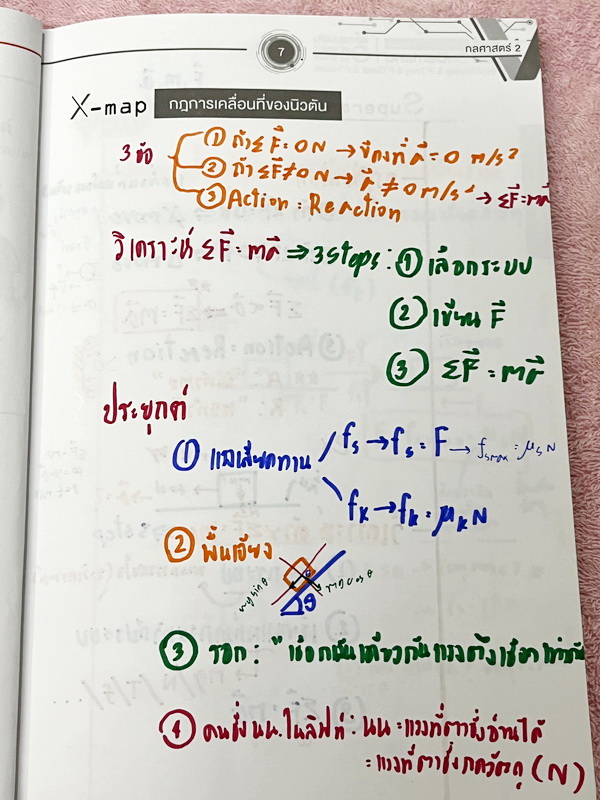 7
กลศาสตร์ 2
X-map กฎการเคลื่อนที่ของนิวตัน
3 ข้อ
① ถ้า ΣF⃗ = 0 N → a⃗ = 0 m/s²
② ถ้า ΣF⃗ ≠ 0 N → a⃗ ≠ 0 m/s² → ΣF⃗ = ma⃗
③ Action = Reaction
วิเคราะห์ ΣF⃗ = ma⃗ ⇒ 3 steps : ① เลือกระบบ
② เขียน F⃗
③ ΣF⃗ = ma⃗
ประยุกต์
① แรงเสียดทาน fs → fs = F → fsmax = μsN
fk → fk = μkN
② พื้นเอียง
mg sin θ mg cos θ
θ
③ รอก : "เชือกเส้นเดียวกันแรงตึงเชือกเท่ากัน
④ คนชั่ง นน. ในลิฟท์ : นน = แรงที่ตาชั่งอ่านได้
= แรงที่ตาชั่งกดวัตถุ (N)